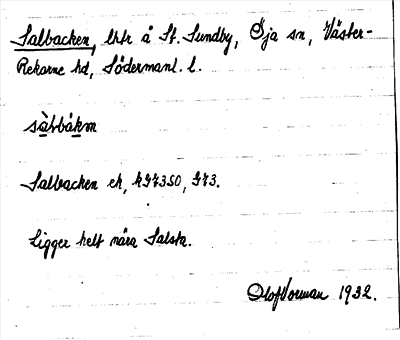 Salbacken, lhtr å St. Sundby, Öja sn, Väster-
Rekarne hd, Södermanl. l.
Salbacken ek, 
Ligger helt nära Salsta.
Olof Vorman 1932.